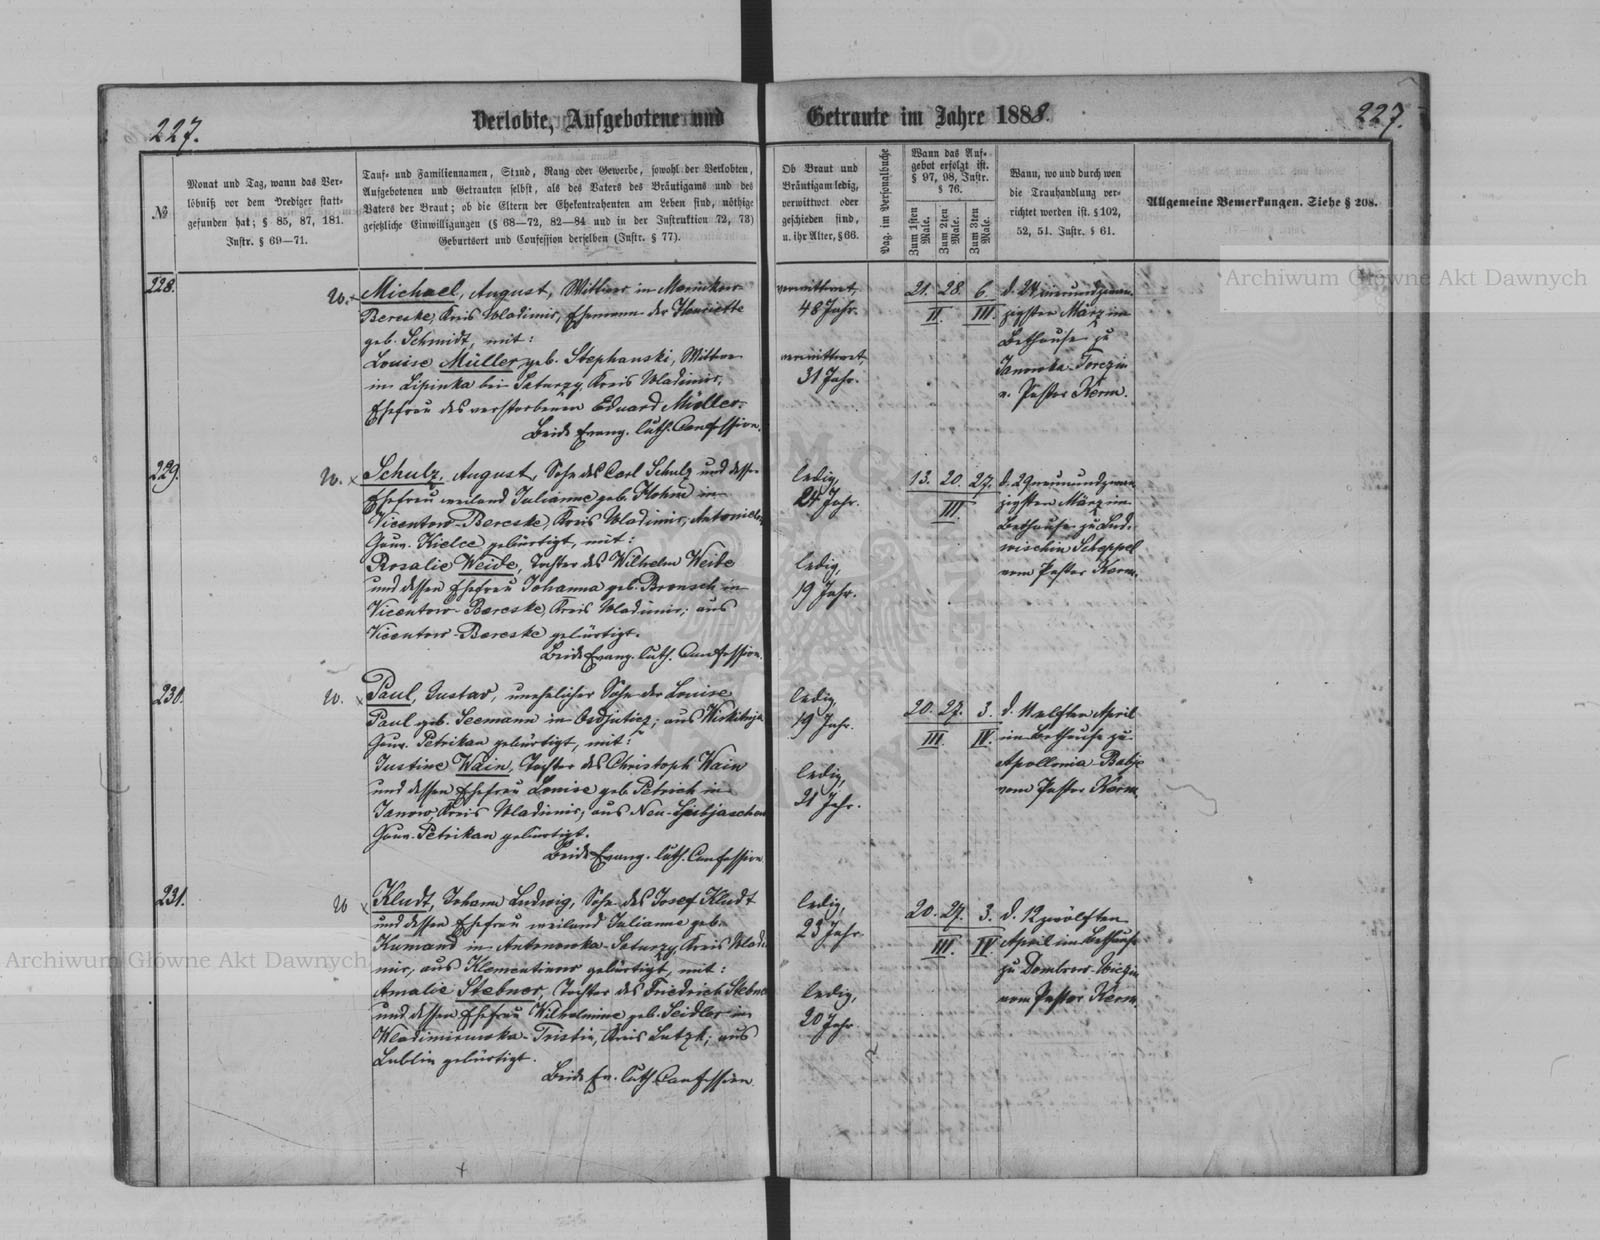 227.
Verlobte, Aufgebotene und Getraute im Jahre 1888.
227.
№
Monat und Tag, wann das Ver-
löbniß vor dem Prediger statt-
gefunden hat; § 85, 87, 181.
Instr. § 69—71.
Tauf- und Familiennamen, Stand, Rang oder Gewerbe, sowohl der Verlobten,
Aufgebotenen und Getrauten selbst, als des Vaters des Bräutigams und des
Vaters der Braut; ob die Eltern der Ehekontrahenten am Leben sind, nöthige
gesetzliche Einwilligungen (§ 68—72, 82—84 und in der Instruktion 72, 73)
Geburtsort und Confession derselben (Instr. § 77).
Ob Braut und
Bräutigam ledig,
verwittwet oder
geschieden sind,
u. ihr Alter, § 66.
Pag. im Personalbuche
Wann das Auf-
gebot erfolgt ist.
§ 97, 98, Instr.
§ 76.
Zum 1sten Male.
Zum 2ten Male.
Zum 3ten Male.
Wann, wo und durch wen
die Trauhandlung ver-
richtet worden ist. § 102,
52, 51. Instr. § 61.
Allgemeine Bemerkungen. Siehe § 208.
228.
Michael, August, Wittwer in
Bereske, Kreis Wladimir, Ehemann der Henriette
geb. Schmidt, mit:
Louise Müller, geb. Stephanski, Wittwe
in Lipinka bei Saturzy, Kreis Wladimir,
Ehefrau des verstorbenen Eduard Müller.
Beide Evang. luth. Confession.
verwittwet,
48 Jahr.
verwittwet,
31 Jahr.
21. 28. 6.
II III
d. 24 vierundzwan-
zigsten März im
Bethause zu
Janowka-Torczin
v. Pastor Kerm.
229.
Schulz, August, Sohn des Carl Schulz und dessen
Ehefrau weiland Julianne geb. in
Vicentow-Bereske, Kreis Wladimir,
Gouv. Kielce gebürtigt, mit:
Rosalie Weide, Tochter des Wilhelm Weide
und dessen Ehefrau Johanna geb. Bronsch in
Vicentow-Bereske, Kreis Wladimir; aus
Vicentow-Bereske gebürtigt.
Beide Evang. luth. Confession.
ledig,
24 Jahr.
ledig,
19 Jahr.
13. 20. 27.
III
d. 29 neunundzwan-
zigsten März im
Bethause zu Lud-
wischin Scheppel
vom Pastor Kerm.
230.
Paul, Gustav, unehelicher Sohn der Louise
Paul geb. Seemann in aus
Gouv. Petrikau gebürtigt, mit:
Justine Wain, Tochter des Christoph Wain
und dessen Ehefrau Louise geb. Petrich in
Janow, Kreis Wladimir; aus Neu-
Gouv. Petrikau gebürtigt.
Beide Evang. luth. Confession
ledig,
19 Jahr.
ledig,
21 Jahr.
20. 27. 3.
III. IV.
d. 11 elften April
im Bethause zu
Apollonia-
vom Pastor Kerm.
231.
Kludt, Johann Ludwig, Sohn des Josef Kludt
und dessen Ehefrau weiland Julianne geb.
in Antonowka-Saturzy, Kreis Wladi-
mir, aus Klementinow gebürtigt, mit:
Amalie Stebner, Tochter des Friedrich Stebner
und dessen Ehefrau Wilhelmine geb. Seidler in
Kreis Lutzk; aus
Lublin gebürtigt.
Beide Ev. luth. Confession.
ledig,
23 Jahr.
ledig,
20 Jahr.
20. 27. 3.
III IV
d. 12 zwölften
April im Bethause
zu Dombrow-
vom Pastor Kerm.
Archiwum Główne Akt Dawnych
Archiwum Główne Akt Dawnych